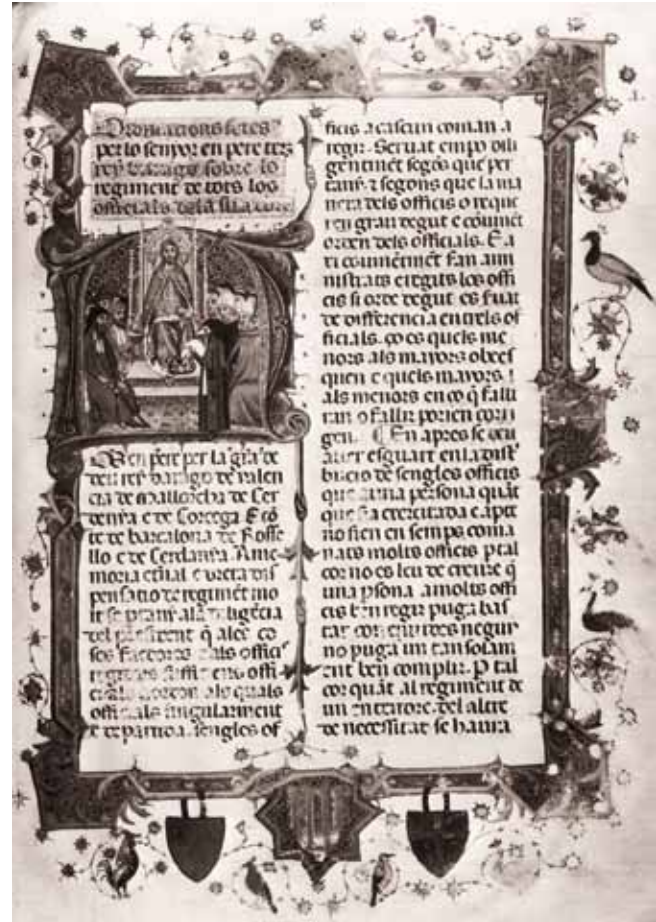 Ordinacions fetes
per lo senyor en pere terç
rey darago sobre lo
regiment de tots los
officials de la sua cort
en pere per la grã de
deu rey darago de valen
cia de Mallorcha de Cer
denya e de Corcega E cõ
te de barcalona de Rosse
llo e de Cerdanya A me
moria
pensatio de regimẽt mo
it se ptany ala
del president q̃
officis
offi
cials als quals
officials singularment
e departida sengles of
ficis a cascun coman a
regir. Seruat empo dili
gentmẽt segõs que per
tany ⁊ segons que la ma
nera dels officis o reque
ren gran degut e cõuinẽt
orden dels officials. E a
xi couinẽtmẽt san ami
nistrats e regits los offi
cis si orde degut es suat
de differencia entrels of
ficials. ço es quels me
nors als maiors obees
quen e quels maiors
als menors en ço q̃ falli
ran o fallir porien corri
gen. En apres se deu
auer esguart en la dist̃
bucio de sengles officis
que a una persona quãt
que sia exercitada e apta
no sien en semps coma
nats molts officis p tal
cor no es leu de creure q̃
una psona a molts offi
cis ben regir puga bas
tar con en
no puga un tan solam
ent ben complir. P tal
cor quãt al regiment de
un entendre. del altre
de necessitat se haura